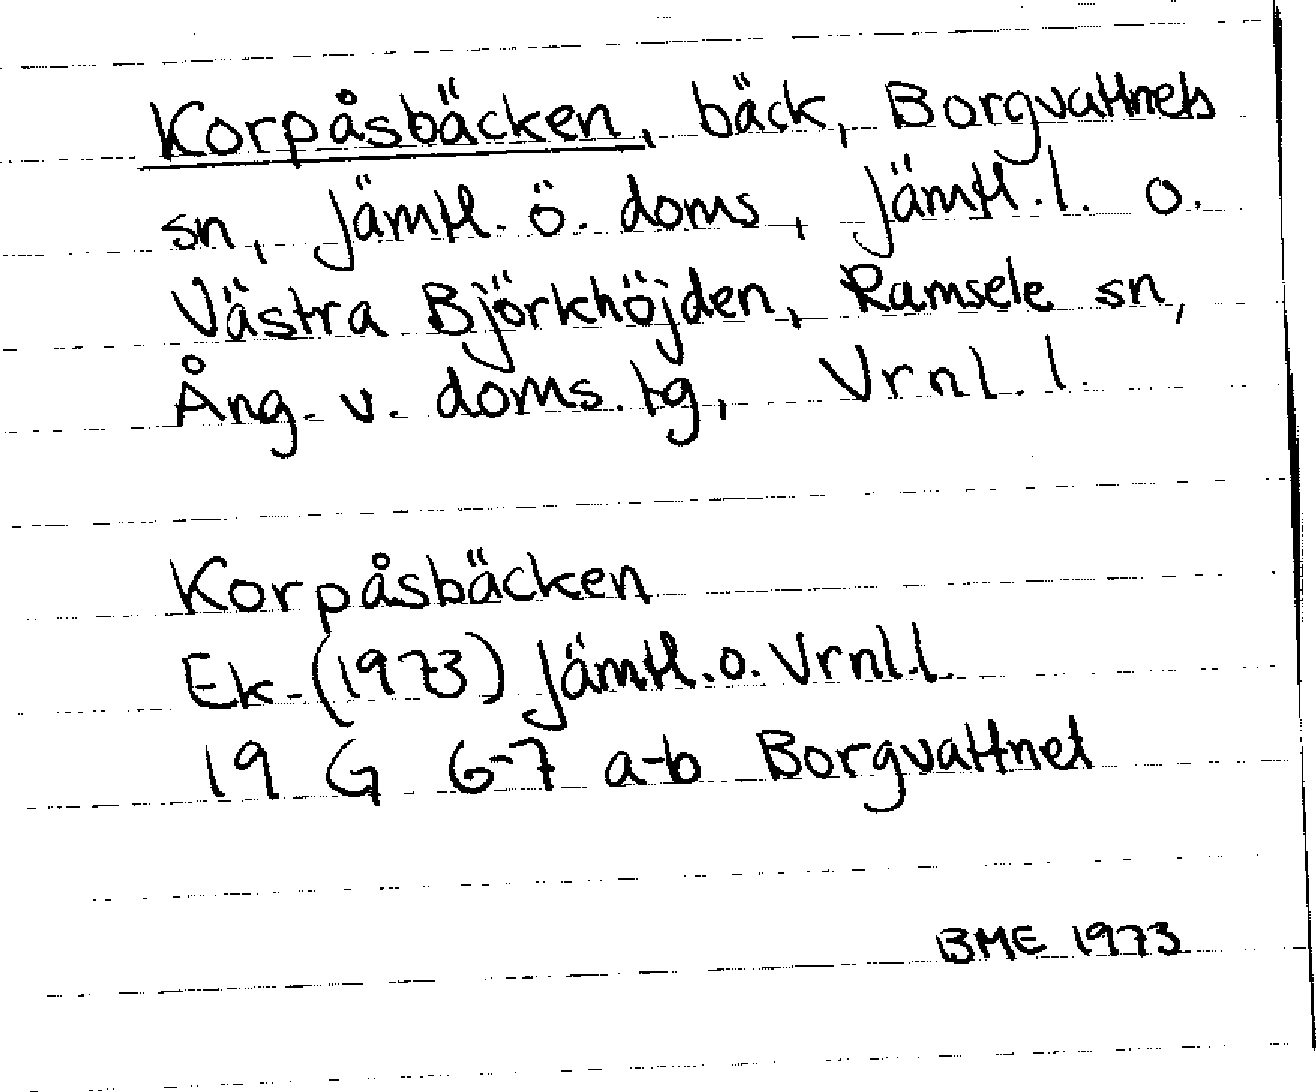 Korpåsbäcken, bäck, Borgvattnets
sn, Jämtl. ö. doms, Jämtl. l. o.
Västra Björkhöjden, Ramsele sn,
Ång. v. doms. tg, Vrnl. l.
Korpåsbäcken
Ek. (1973) Jämtl. o. Vrnl. l
19 G 6-7 a-b Borgvattnet
BME 1973